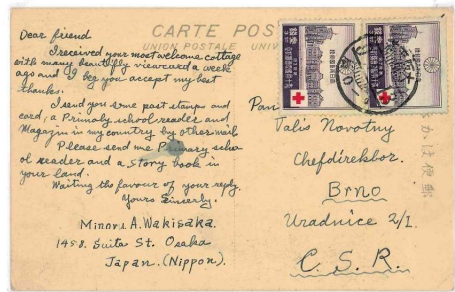 CARTE POS
UNION POSTALE UNIV
Dear friend
I received your most welcome cottage
with many beautifully viewcard a week
ago and I beg you accept my best
thanks.
I send you some past stamps and
card, a Primaly school reader and
Magazin in my country by other mail
Please send me Primary scho-
ol reader and a story book in
your land.
Waiting the favour of your reply.
Yours Sincerly.
Minoru A. Wakisaka.
1458. Buita St. Osaka
Japan. (Nippon).
Pan
Talis Novotny
Chefdirektor.
Brno
Uradnice 2/I.
C. S. R.
きがは便郵